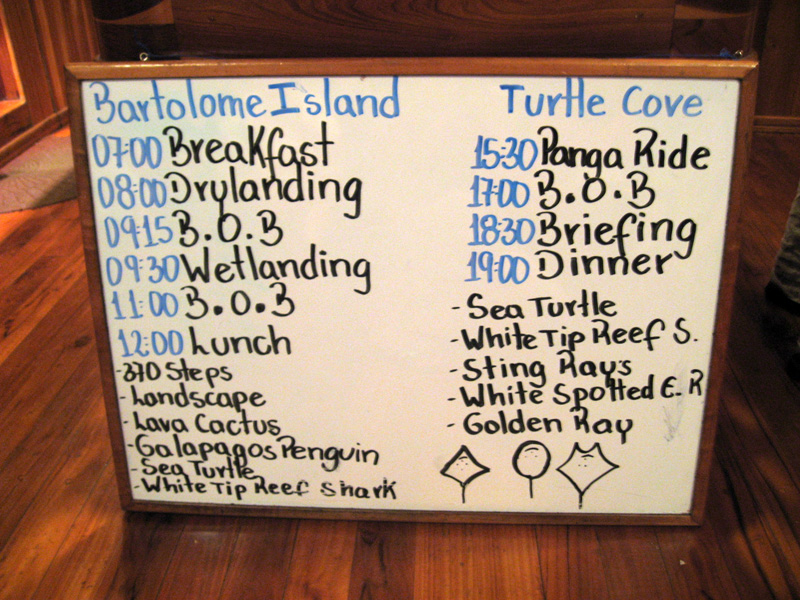 Bartolome Island
07:00 Breakfast
08:00 Drylanding
09:15 B.O.B
09:30 Wetlanding
11:00 B.O.B
12:00 Lunch
-370 Steps
-Landscape
-Lava Cactus
-Galapagos Penguin
-Sea Turtle
-White Tip Reef Shark
Turtle Cove
15:30 Panga Ride
17:00 B.O.B
18:30 Briefing
19:00 Dinner
-Sea Turtle
-White Tip Reef S.
-Sting Ray's
-White Spotted E.R
-Golden Ray